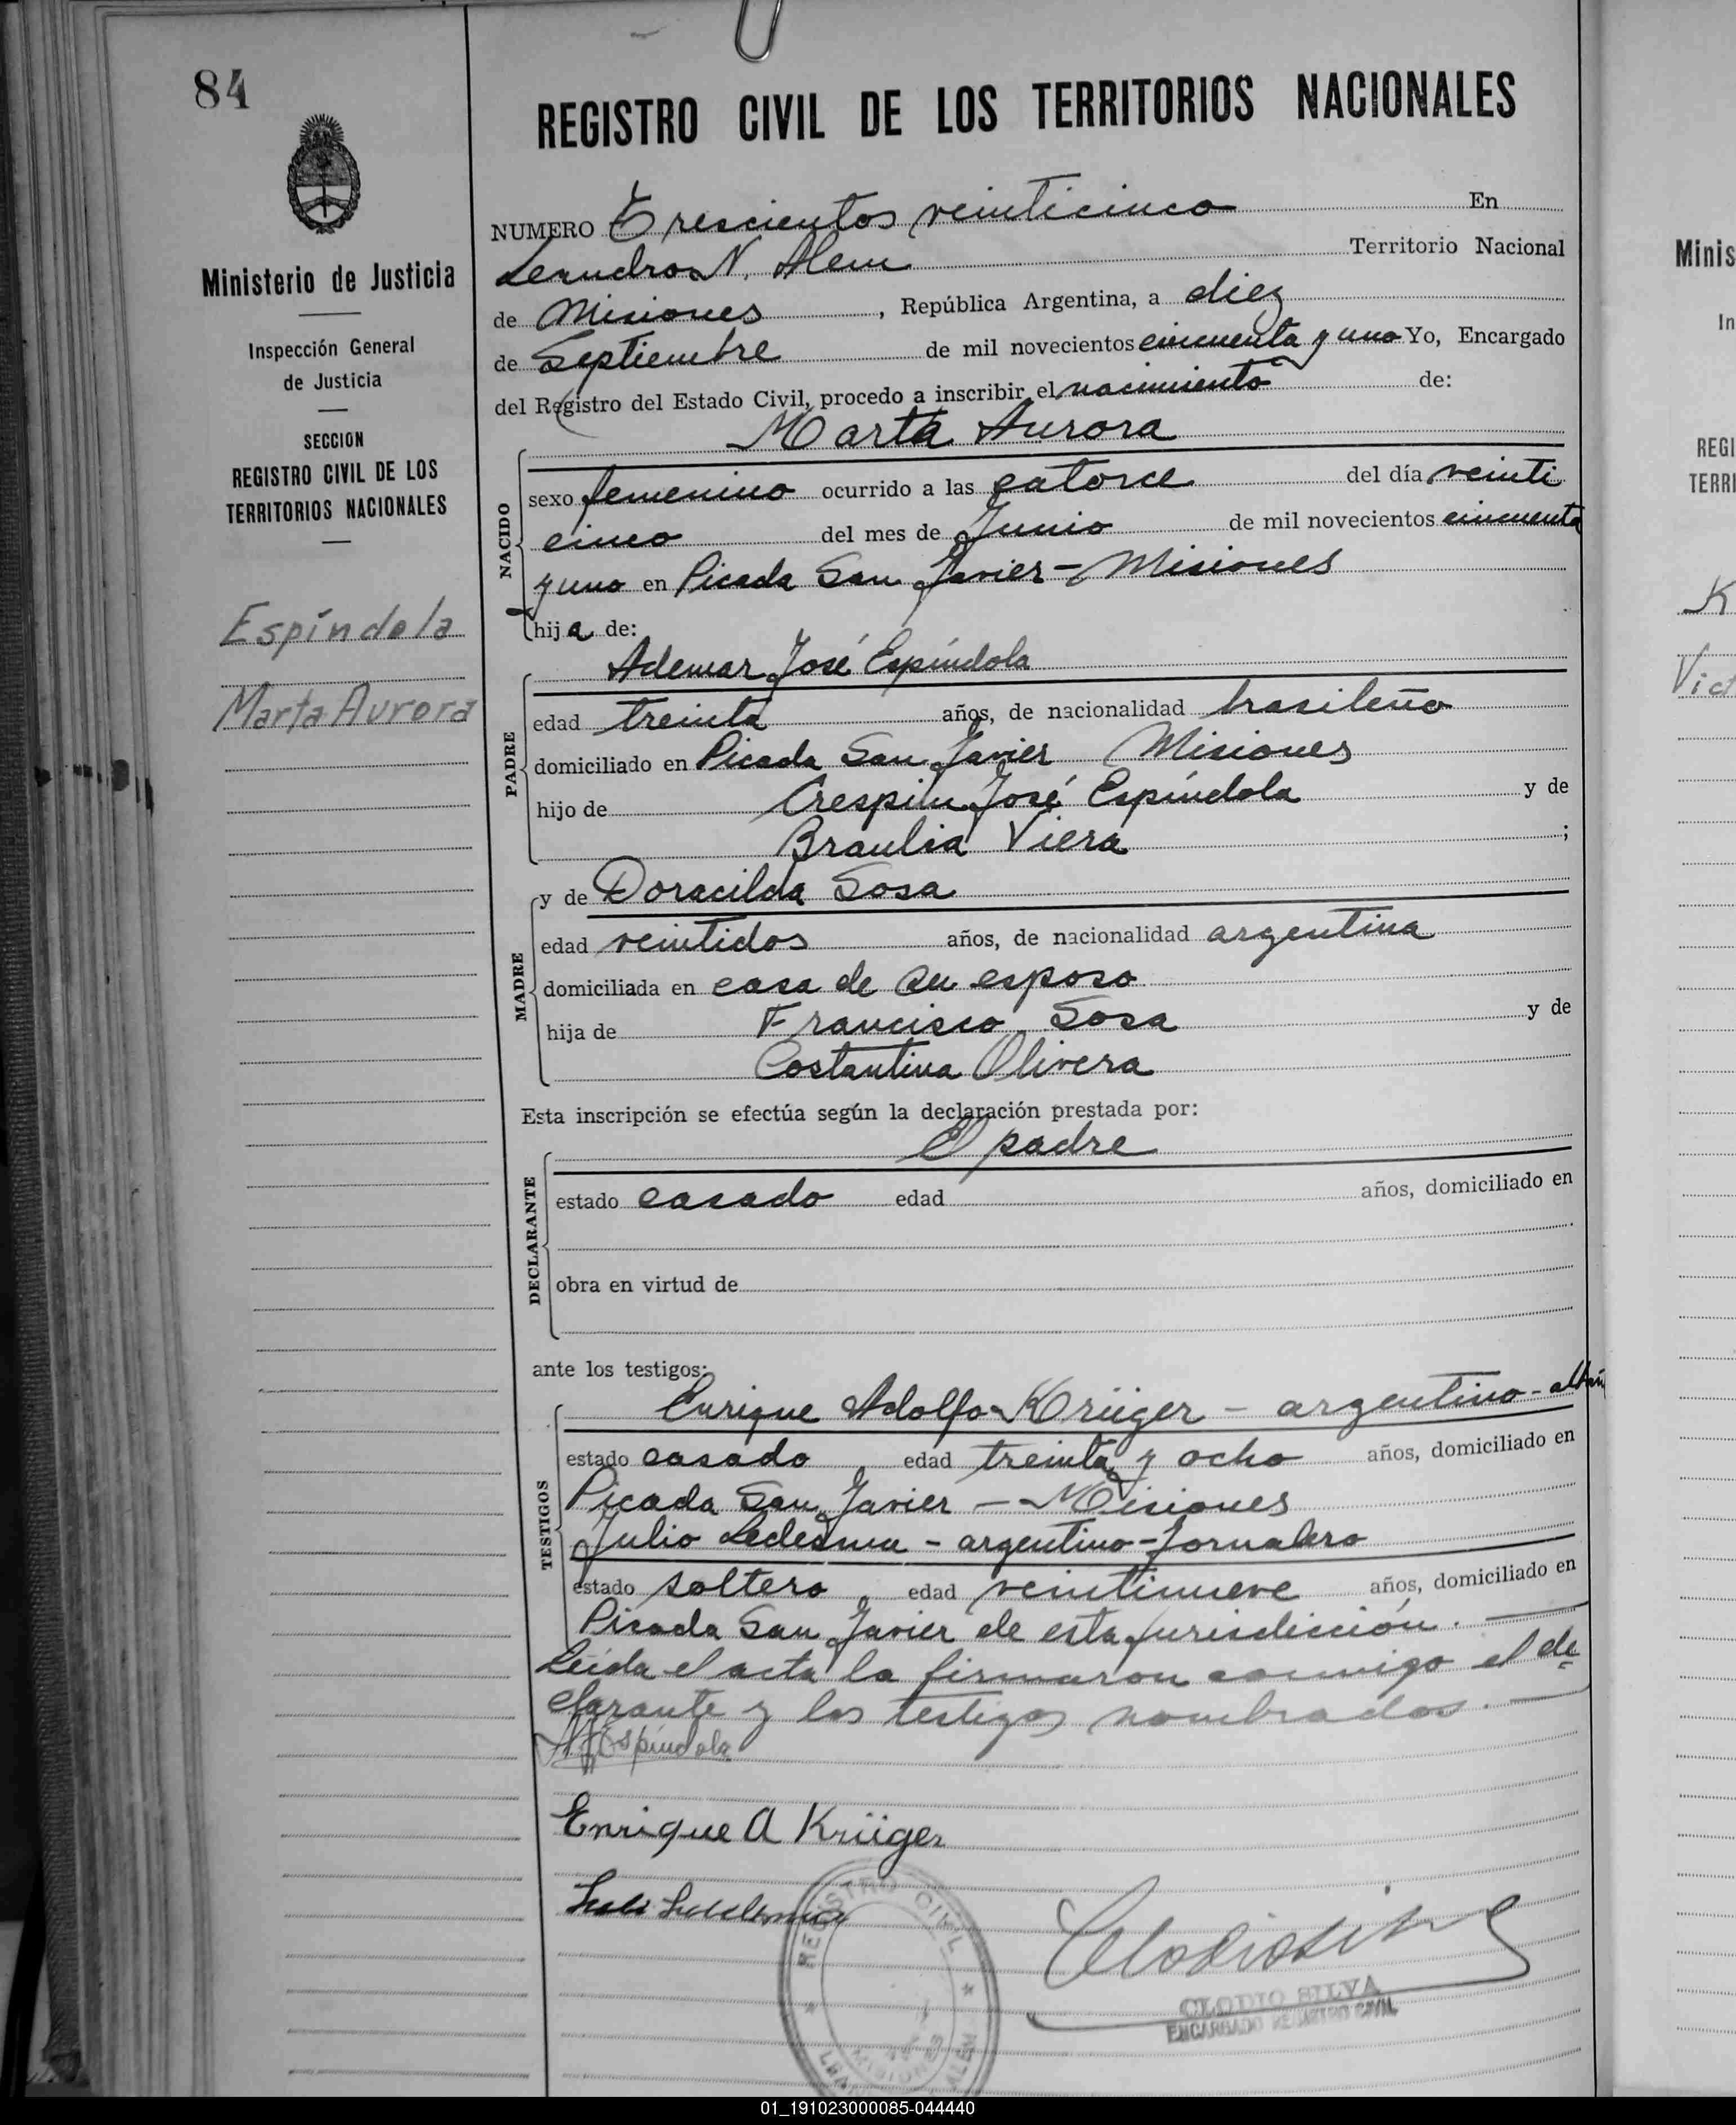 84
REGISTRO CIVIL DE LOS TERRITORIOS NACIONALES
Ministerio de Justicia
Inspección General
de Justicia
SECCION
REGISTRO CIVIL DE LOS
TERRITORIOS NACIONALES
Espíndola
Marta Aurora
NUMERO Trescientos veinticinco En
Leandro N. Alem Territorio Nacional
de Misiones, República Argentina, a diez
de Septiembre de mil novecientos cincuenta y uno Yo, Encargado
del Registro del Estado Civil, procedo a inscribir el nacimiento de:
Marta Aurora
NACIDO
sexo femenino ocurrido a las catorce del día veinti
cinco del mes de Junio de mil novecientos cincuenta
y uno en Picada San Javier - Misiones
hija de:
Ademar José Espíndola
PADRE
edad treinta años, de nacionalidad brasileño
domiciliado en Picada San Javier Misiones
hijo de Crespin José Espíndola y de
Braulia Viera ;
y de Doracilda Sosa
MADRE
edad veintidos años, de nacionalidad argentina
domiciliada en casa de su esposo
hija de Francisco Sosa y de
Costantina Olivera
Esta inscripción se efectúa según la declaración prestada por:
El padre
DECLARANTE
estado casado edad años, domiciliado en
obra en virtud de
ante los testigos:
Enrique Adolfo Krüger - argentino -
TESTIGOS
estado casado edad treinta y ocho años, domiciliado en
Picada San Javier - Misiones
Julio Ledesma - argentino - Jornalero
estado soltero, edad veintinueve años, domiciliado en
Picada San Javier de esta jurisdicción.
Leída el acta la firmaron conmigo el de
clarante y los testigos nombrados.
Espíndola
Enrique A Krüger
REGISTRO CIVIL
MISIONES
ALEM
CLODIO SILVA
ENCARGADO REGISTRO CIVIL
Minis
In
REGI
TERRI
K
Vict
01_191023000085-044440